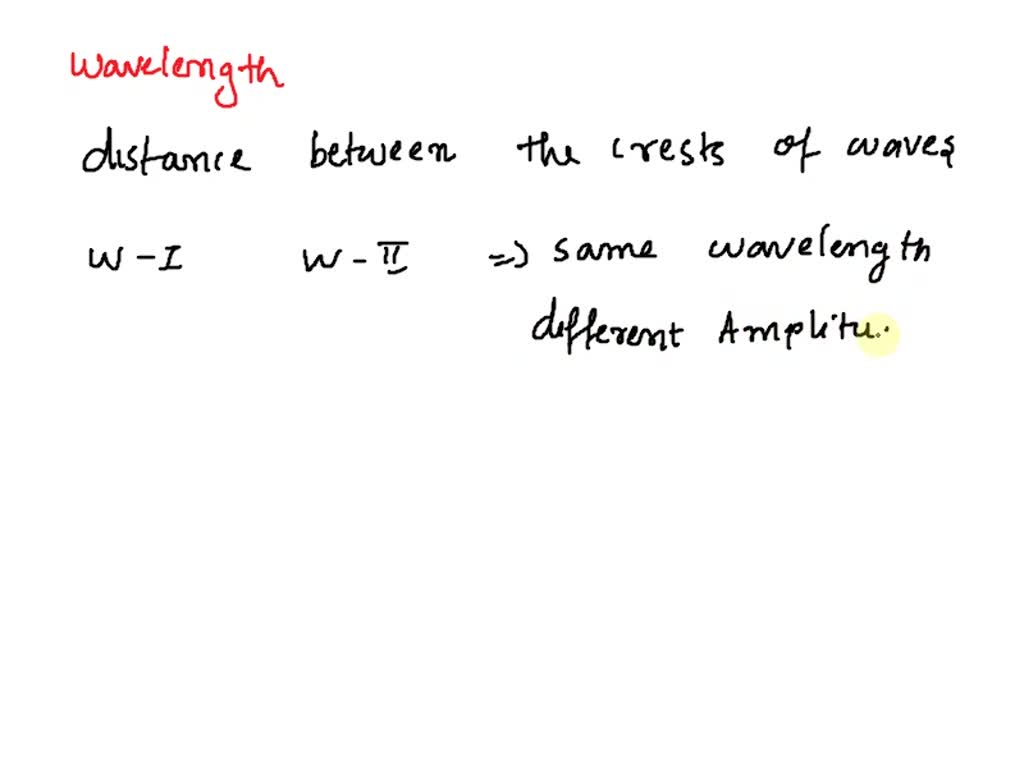 Wavelength
distance between the crests of waves
W-I W-II => same wavelength
different Amplitu